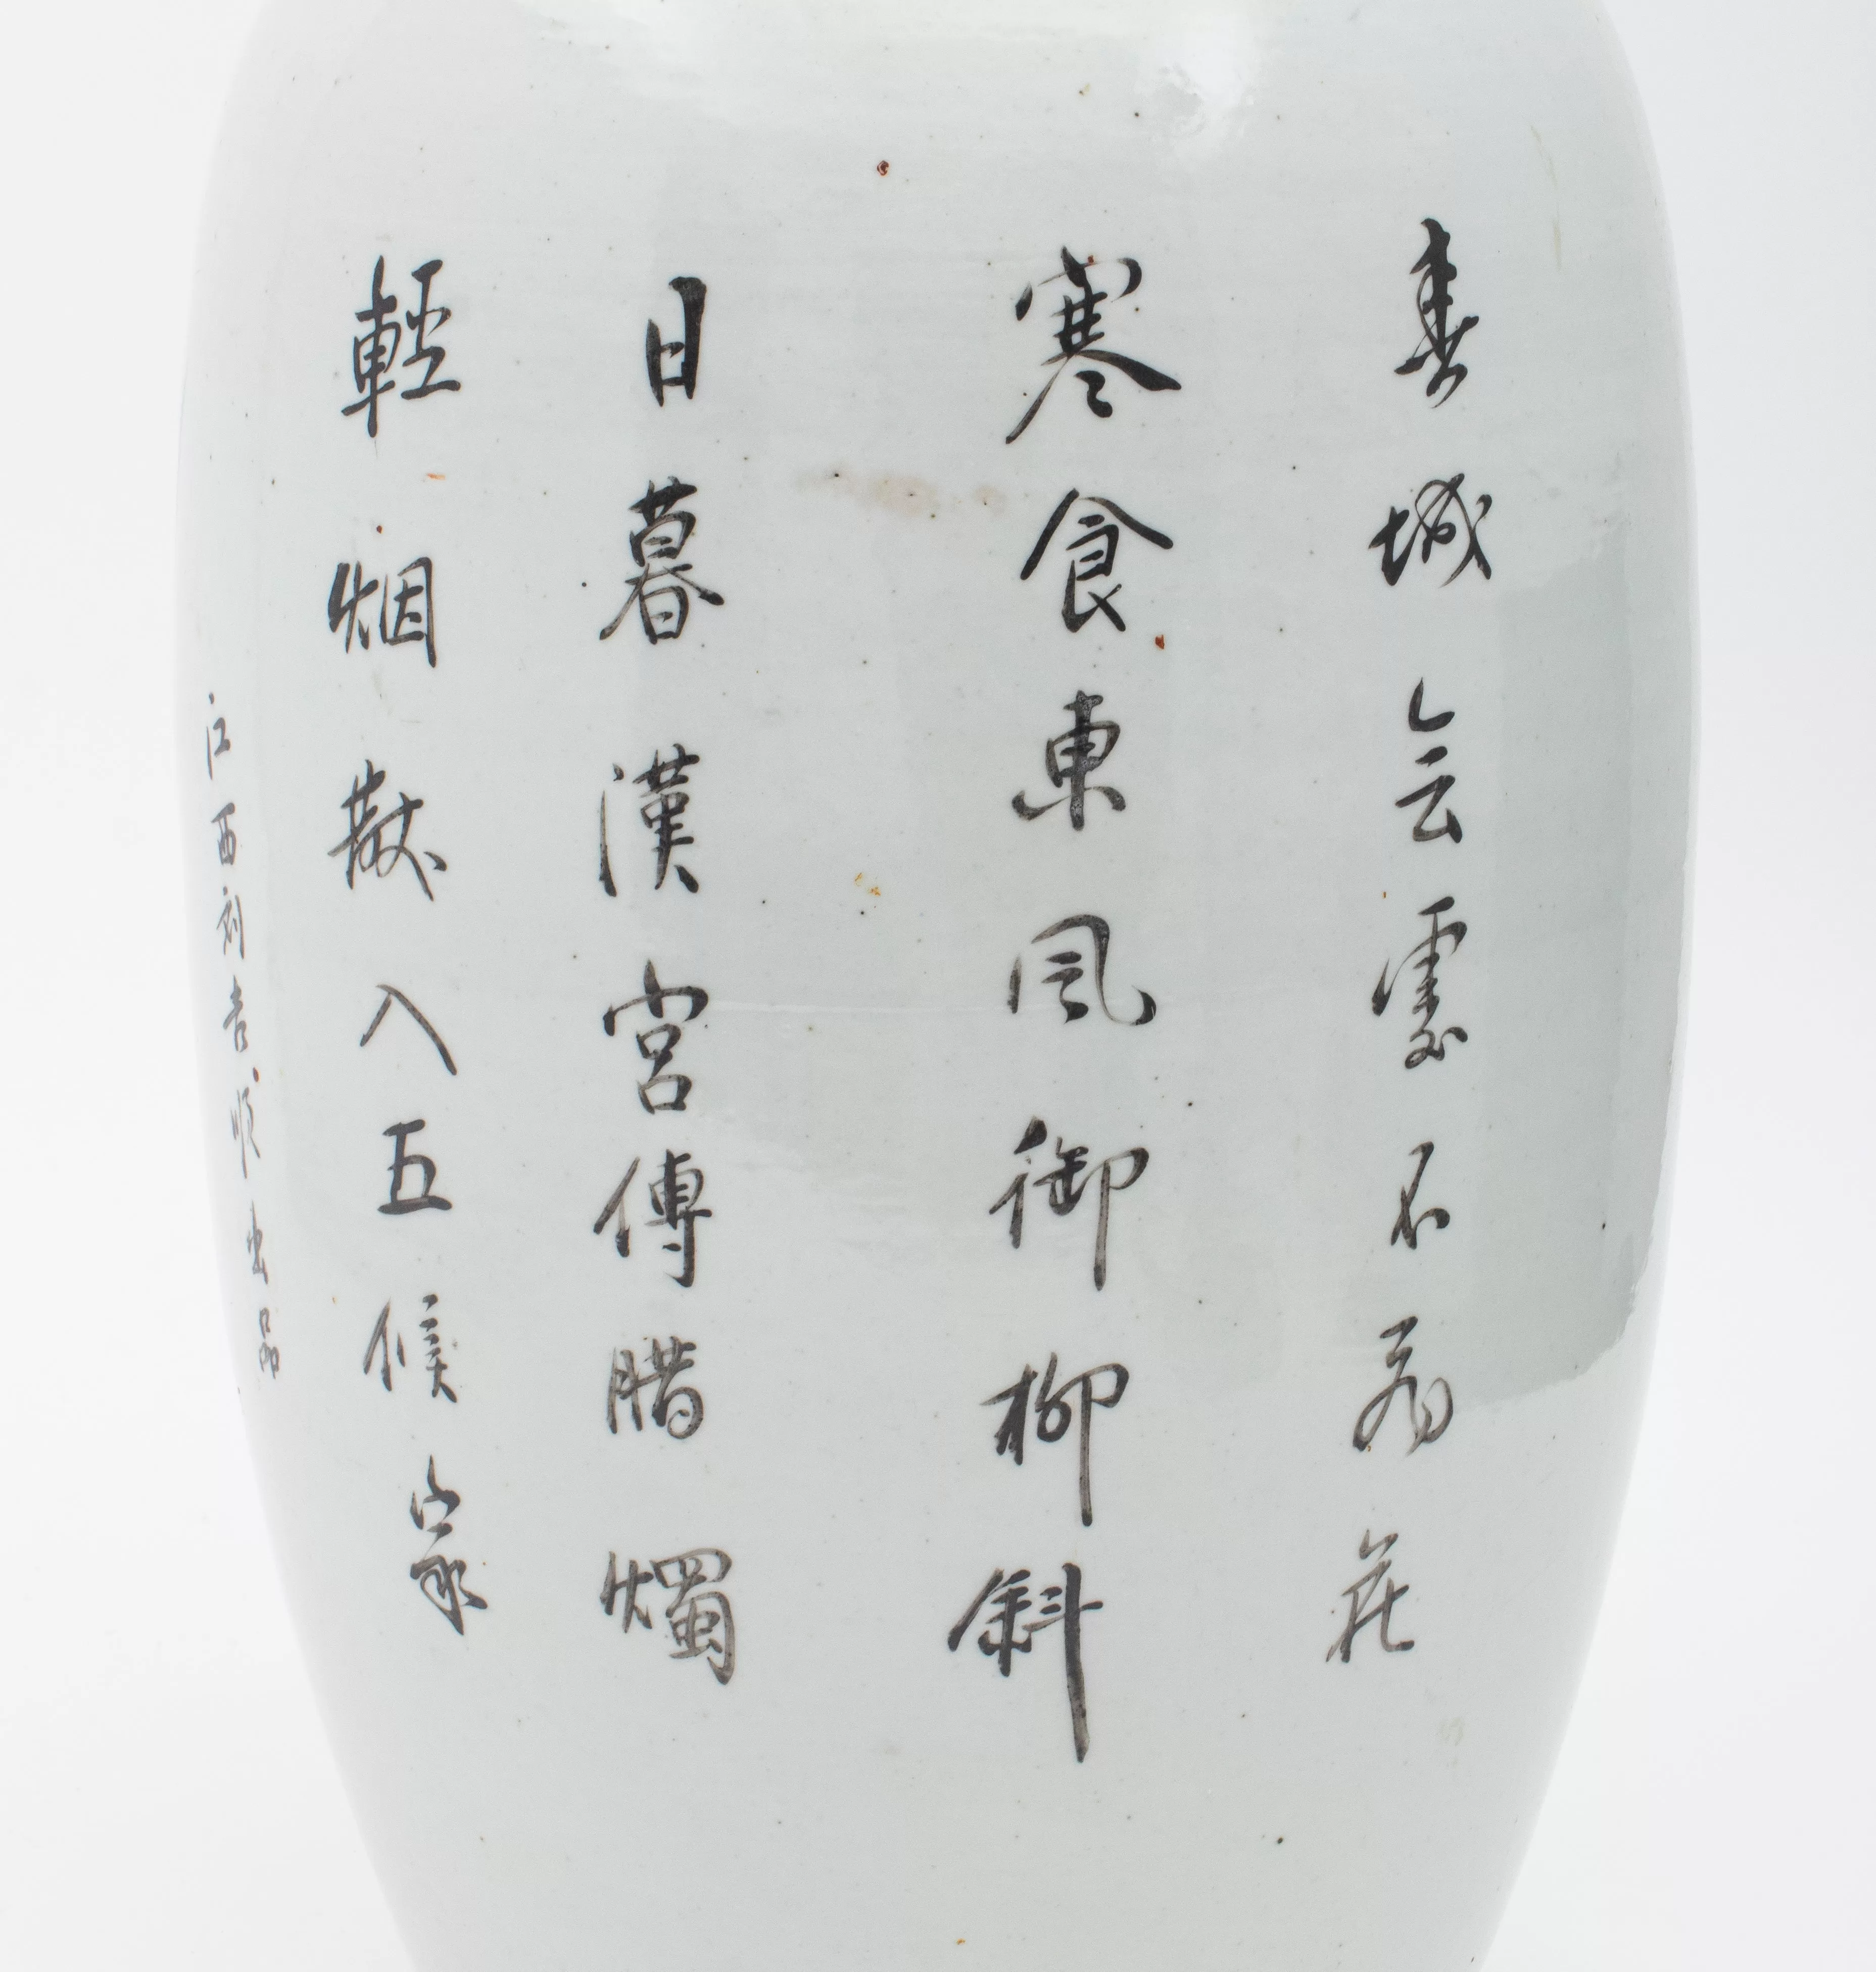 春城無處不飛花
寒食東風御柳斜
日暮漢宮傳腊燭
輕烟散入五侯家
江西刘吉順出品